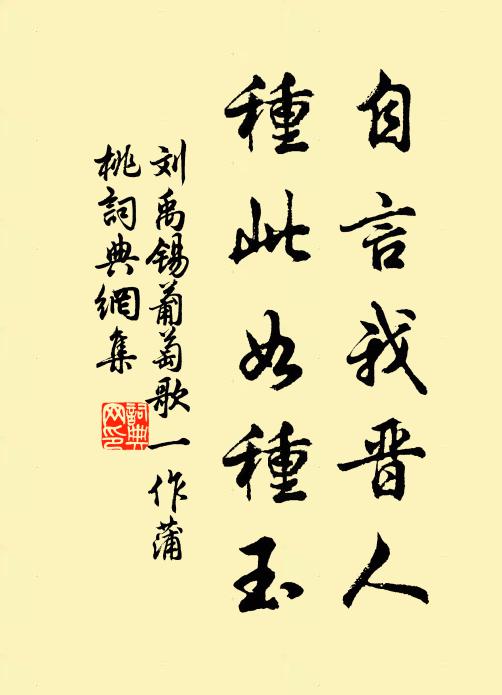 自言我晋人
種此如種玉
刘禹锡葡萄歌一作蒲
桃詞典網集
詞典网印